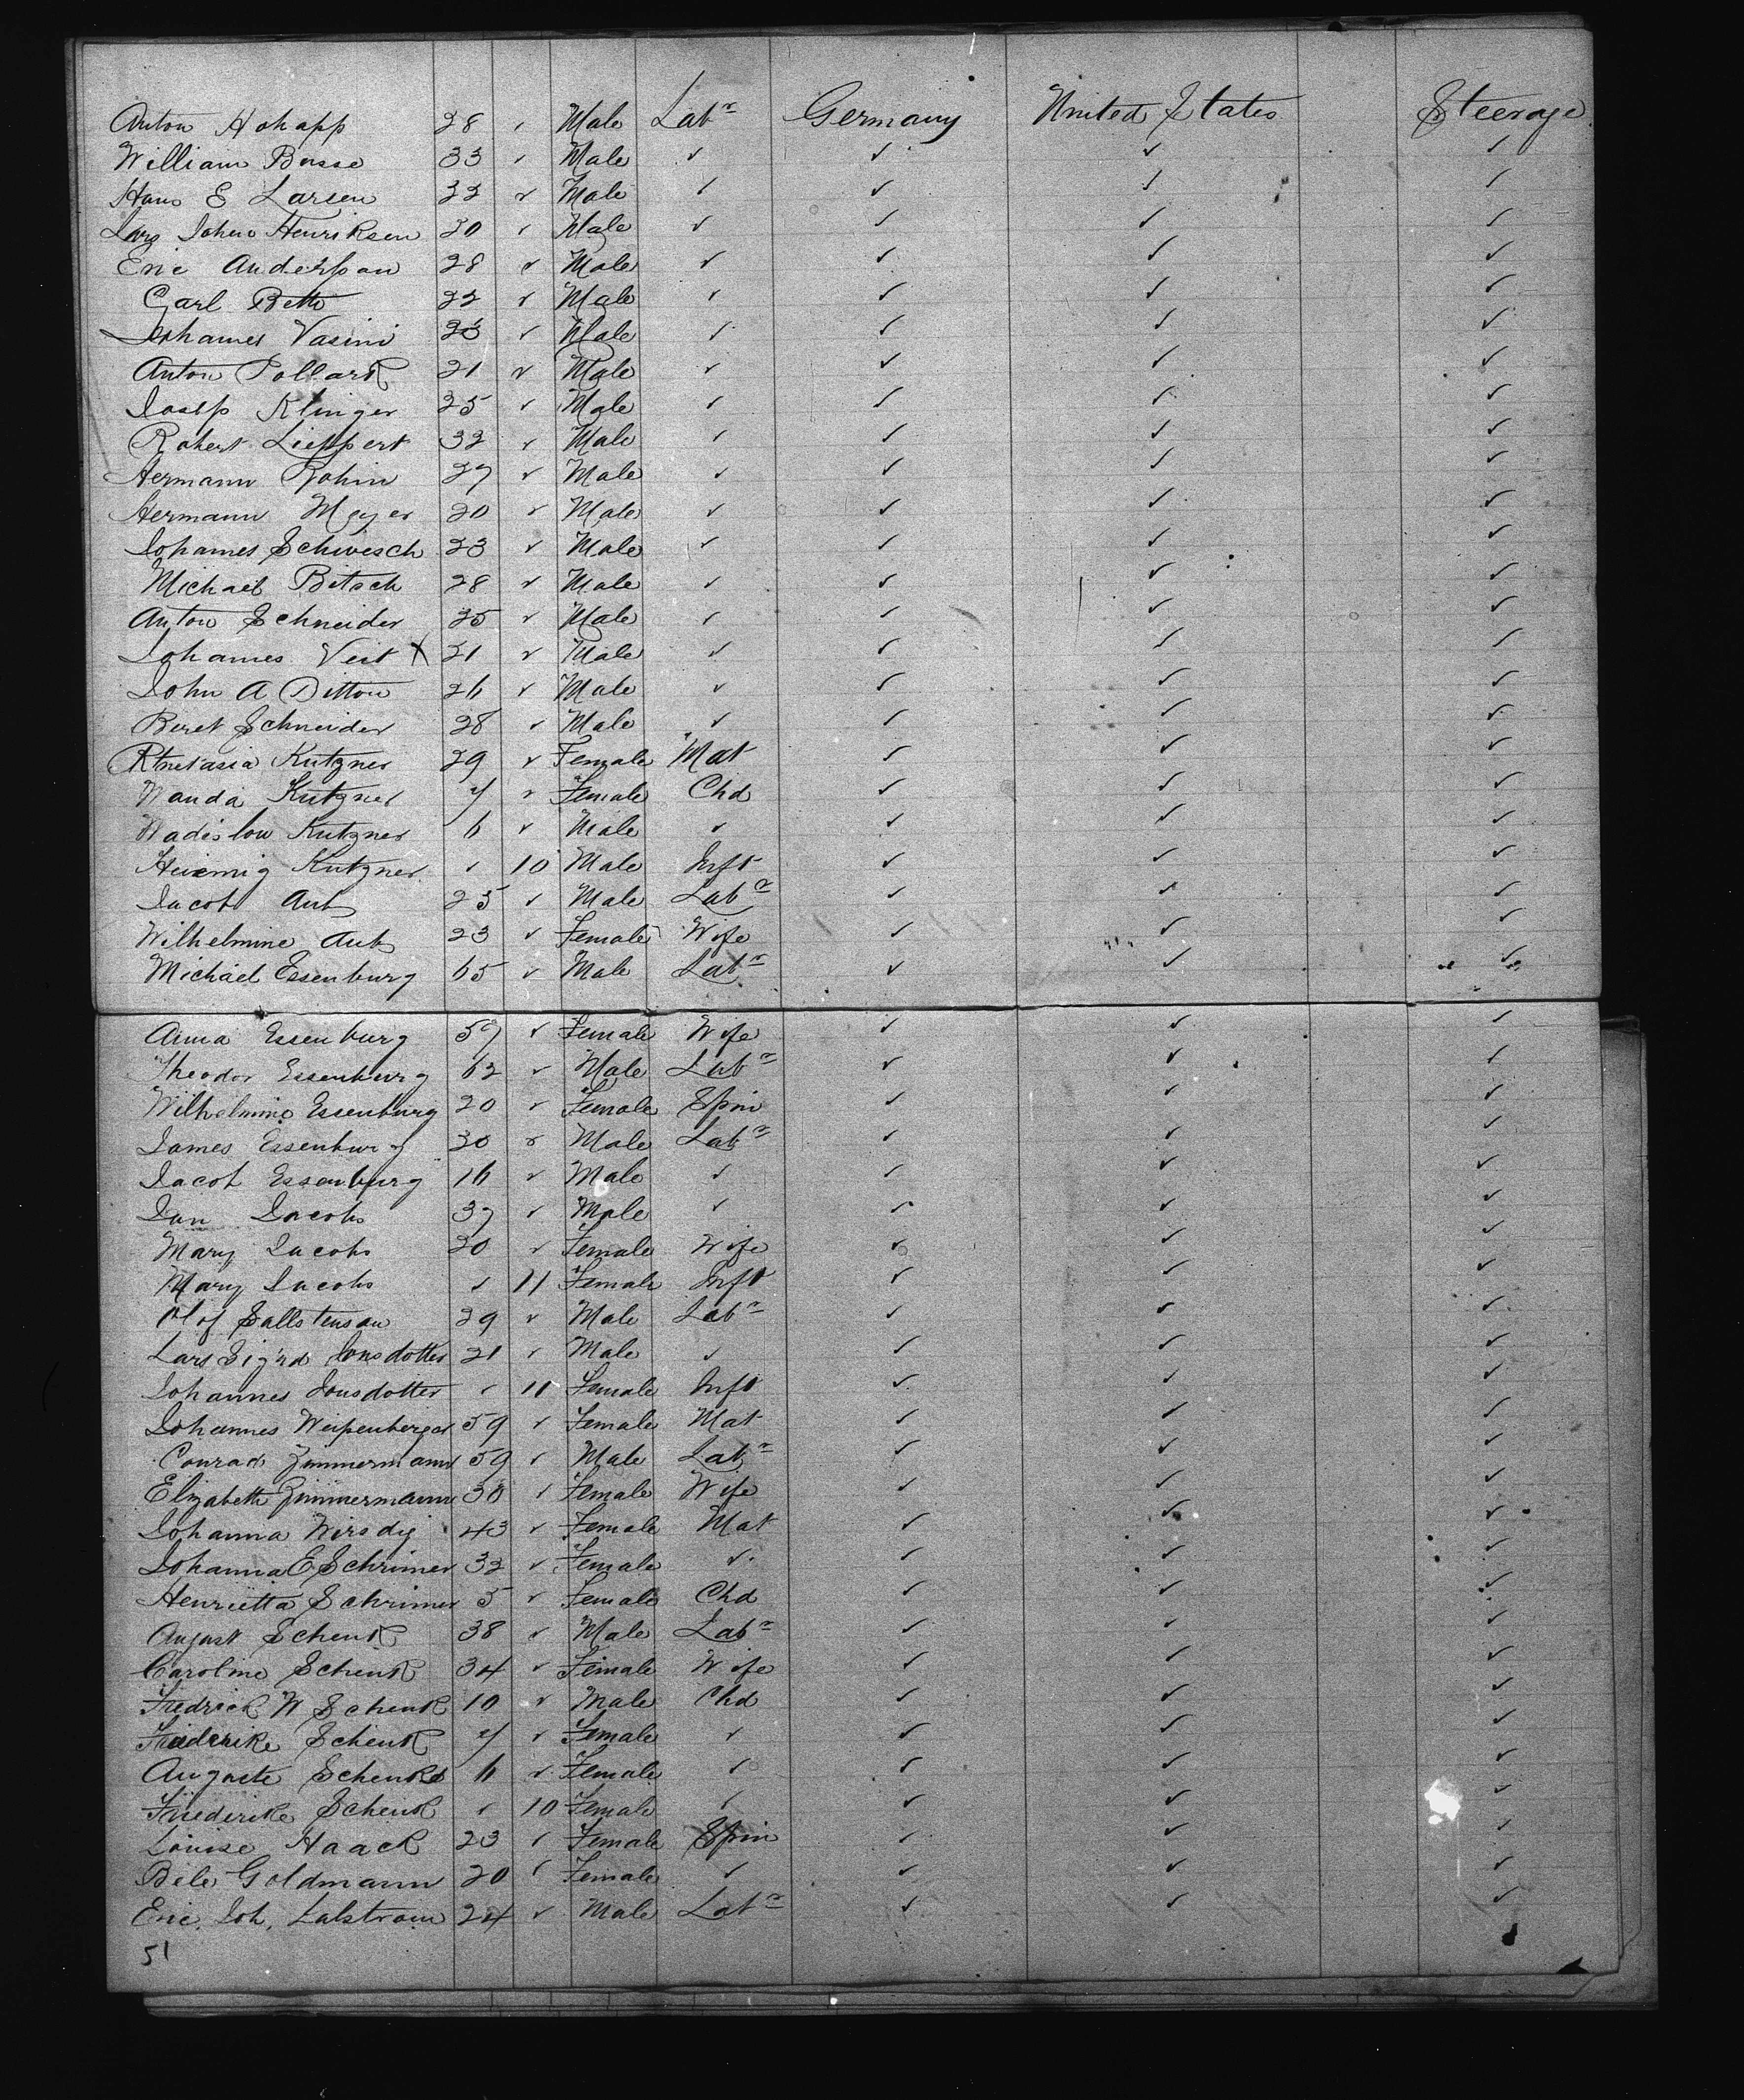 Anton Hohapp 28 ✓ Male Labr Germany United States Steerage
William Busse 33 ✓ Male ✓ ✓ ✓ ✓
Hans E Larsen 32 ✓ Male ✓ ✓ ✓ ✓
Lars Johen Henriksen 30 ✓ Male ✓ ✓ ✓ ✓
Eric Anderson 28 ✓ Male ✓ ✓ ✓ ✓
Carl Beth 22 ✓ Male ✓ ✓ ✓ ✓
Johames Vasini ✓ Male ✓ ✓ ✓ ✓
Anton Pollark 21 ✓ Male ✓ ✓ ✓ ✓
Josep Klinger 25 ✓ Male ✓ ✓ ✓ ✓
Robert Lieppert 32 ✓ Male ✓ ✓ ✓ ✓
Hermann Rohin 27 ✓ Male ✓ ✓ ✓ ✓
Hermann Meyer 20 ✓ Male ✓ ✓ ✓ ✓
Johames Schwesch 23 ✓ Male ✓ ✓ ✓ ✓
Michael Bitsch 28 ✓ Male ✓ ✓ ✓ ✓
Anton Schneider 35 ✓ Male ✓ ✓ ✓ ✓
Johames Veit X 21 ✓ Male ✓ ✓ ✓ ✓
John A Ditton 26 ✓ Male ✓ ✓ ✓ ✓
Beret Schneider 28 ✓ Male ✓ ✓ ✓ ✓
Kutzner 29 ✓ Female Mat ✓ ✓ ✓
Wanda Kutzner 7 ✓ Female Chd ✓ ✓ ✓
Wadislow Kutzner 6 ✓ Male ✓ ✓ ✓ ✓
Kutzner ✓ 10 Male Inft ✓ ✓ ✓
Jacob Aub 25 ✓ Male Labr ✓ ✓ ✓
Wilhelmine Aub 23 ✓ Female Wife ✓ ✓ ✓
Michael Essenburg 65 ✓ Male Labr ✓ ✓ ✓
Anna Essenburg 57 ✓ Female Wife ✓ ✓ ✓
Theodor Essenburg 62 ✓ Male Labr ✓ ✓ ✓
Wilhelmine Essenburg 20 ✓ Female Spin ✓ ✓ ✓
James Essenburg 30 ✓ Male Labr ✓ ✓ ✓
Jacob Essenburg 16 ✓ Male ✓ ✓ ✓ ✓
Jan Jacobs 37 ✓ Male ✓ ✓ ✓ ✓
Mary Jacobs 20 ✓ Female Wife ✓ ✓ ✓
Mary Jacobs ✓ 11 Female Inft ✓ ✓ ✓
Olof Sallstensan 29 ✓ Male Labr ✓ ✓ ✓
Lars Sigrd Jonsdotter 21 ✓ Male ✓ ✓ ✓ ✓
Johannes Jonsdotter ✓ 11 Female Inft ✓ ✓ ✓
Johannes Weipenberger 59 ✓ Female Mat ✓ ✓ ✓
Conrad Zimmermann 59 ✓ Male Labr ✓ ✓ ✓
Elizabeth Zimmermann 38 ✓ Female Wife ✓ ✓ ✓
Johanna Wirsdig 43 ✓ Female Mat ✓ ✓ ✓
Johanna E Schrimer 32 ✓ Female ✓ ✓ ✓ ✓
Henrietta Schrimer 5 ✓ Female Chd ✓ ✓ ✓
August Schenk 38 ✓ Male Labr ✓ ✓ ✓
Caroline Schenk 34 ✓ Female Wife ✓ ✓ ✓
Fredrick W Schenk 10 ✓ Male Chd ✓ ✓ ✓
Friederike Schenk 7 ✓ Female ✓ ✓ ✓ ✓
Auguste Schenke 6 ✓ Female ✓ ✓ ✓ ✓
Friederike Schenk ✓ 10 Female ✓ ✓ ✓ ✓
Louise Haack 23 ✓ Female Spin ✓ ✓ ✓
Bele Goldmann 20 ✓ Female ✓ ✓ ✓ ✓
Eric Joh. Lalstrom 24 ✓ Male Labr ✓ ✓ ✓
51